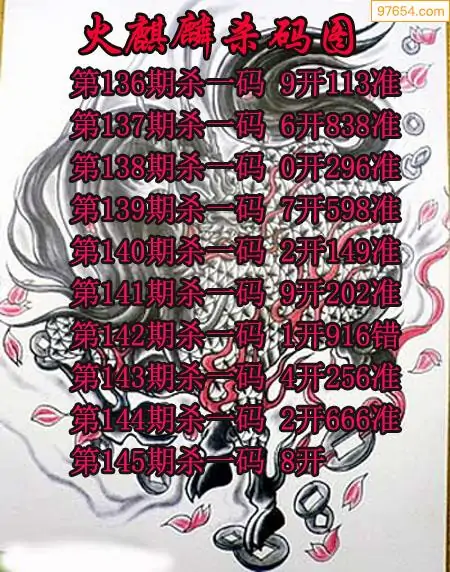 97654.com
火麒麟杀码图
第136期杀一码 9开113准
第137期杀一码 6开838准
第138期杀一码 0开296准
第139期杀一码 7开598准
第140期杀一码 2开149准
第141期杀一码 9开202准
第142期杀一码 1开916错
第143期杀一码 4开256准
第144期杀一码 2开666准
第145期杀一码 8开